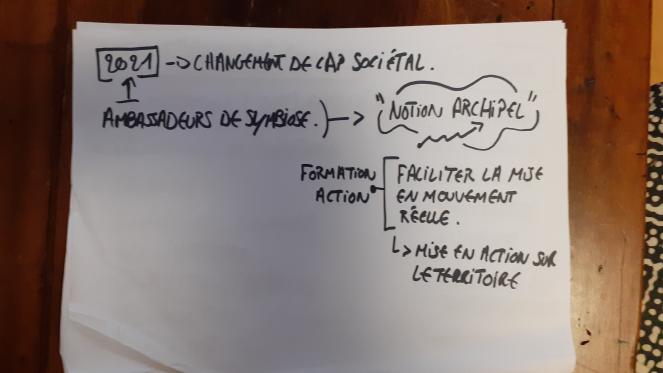 2021 -> CHANGEMENT DE CAP SOCIÉTAL.
AMBASSADEURS DE SYMBIOSE. ) -> "NOTION ARCHIPEL"
FORMATION
ACTION
FACILITER LA MISE
EN MOUVEMENT
RÉELLE.
↳ MISE EN ACTION SUR
LE TERRITOIRE